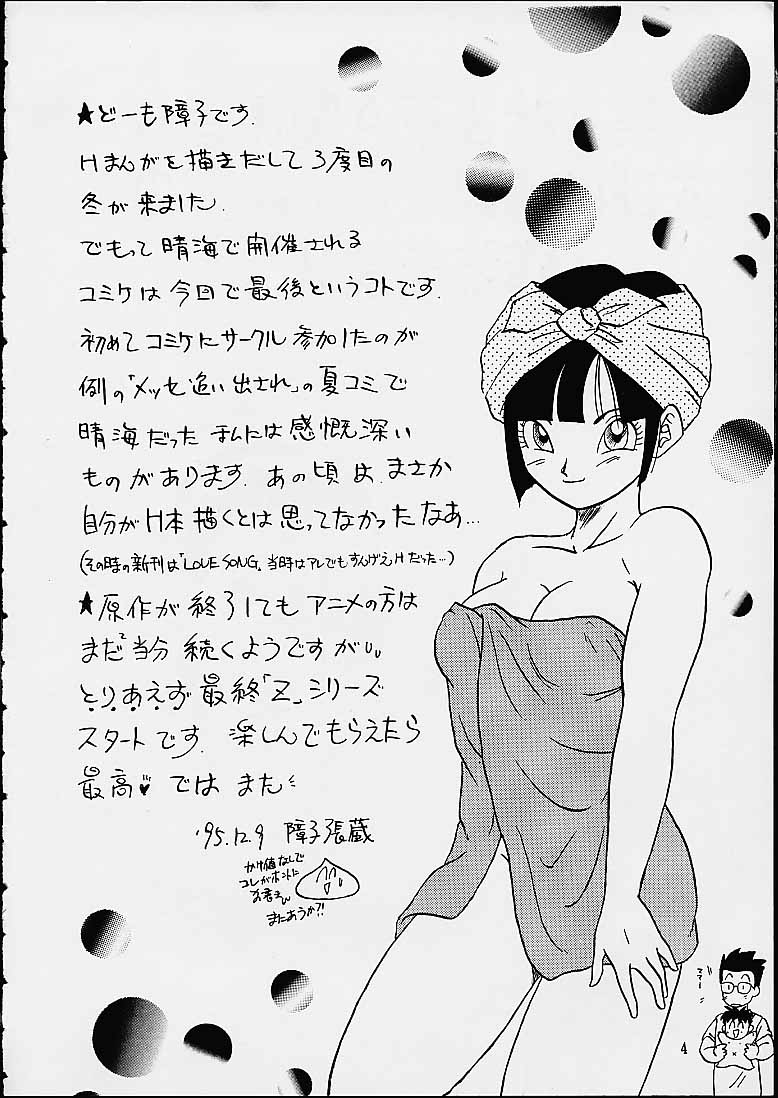 ★どーも障子です.
Hまんがを描きだして3度目の
冬が来ました.
でもって晴海で開催される
コミケは今回で最後というコトです.
初めてコミケにサークル参加したのが
例の「メッセ追い出され」の夏コミで
晴海だったまんには感慨深い
ものがあります. あの頃は まさか
自分がH本描くとは思ってなかったなあ…
(その時の新刊は「LOVE SONG」当時はアレでもすんげえHだった…)
★原作が終了してもアニメの方は
まだ当分続くようですが
とりあえず最終「Z」シリーズ
スタートです. 楽しんでもらえたら
最高♥ では また
'95.12.9 障子張蔵
かけ値なしで
コレがホントに
またあうか?!
4